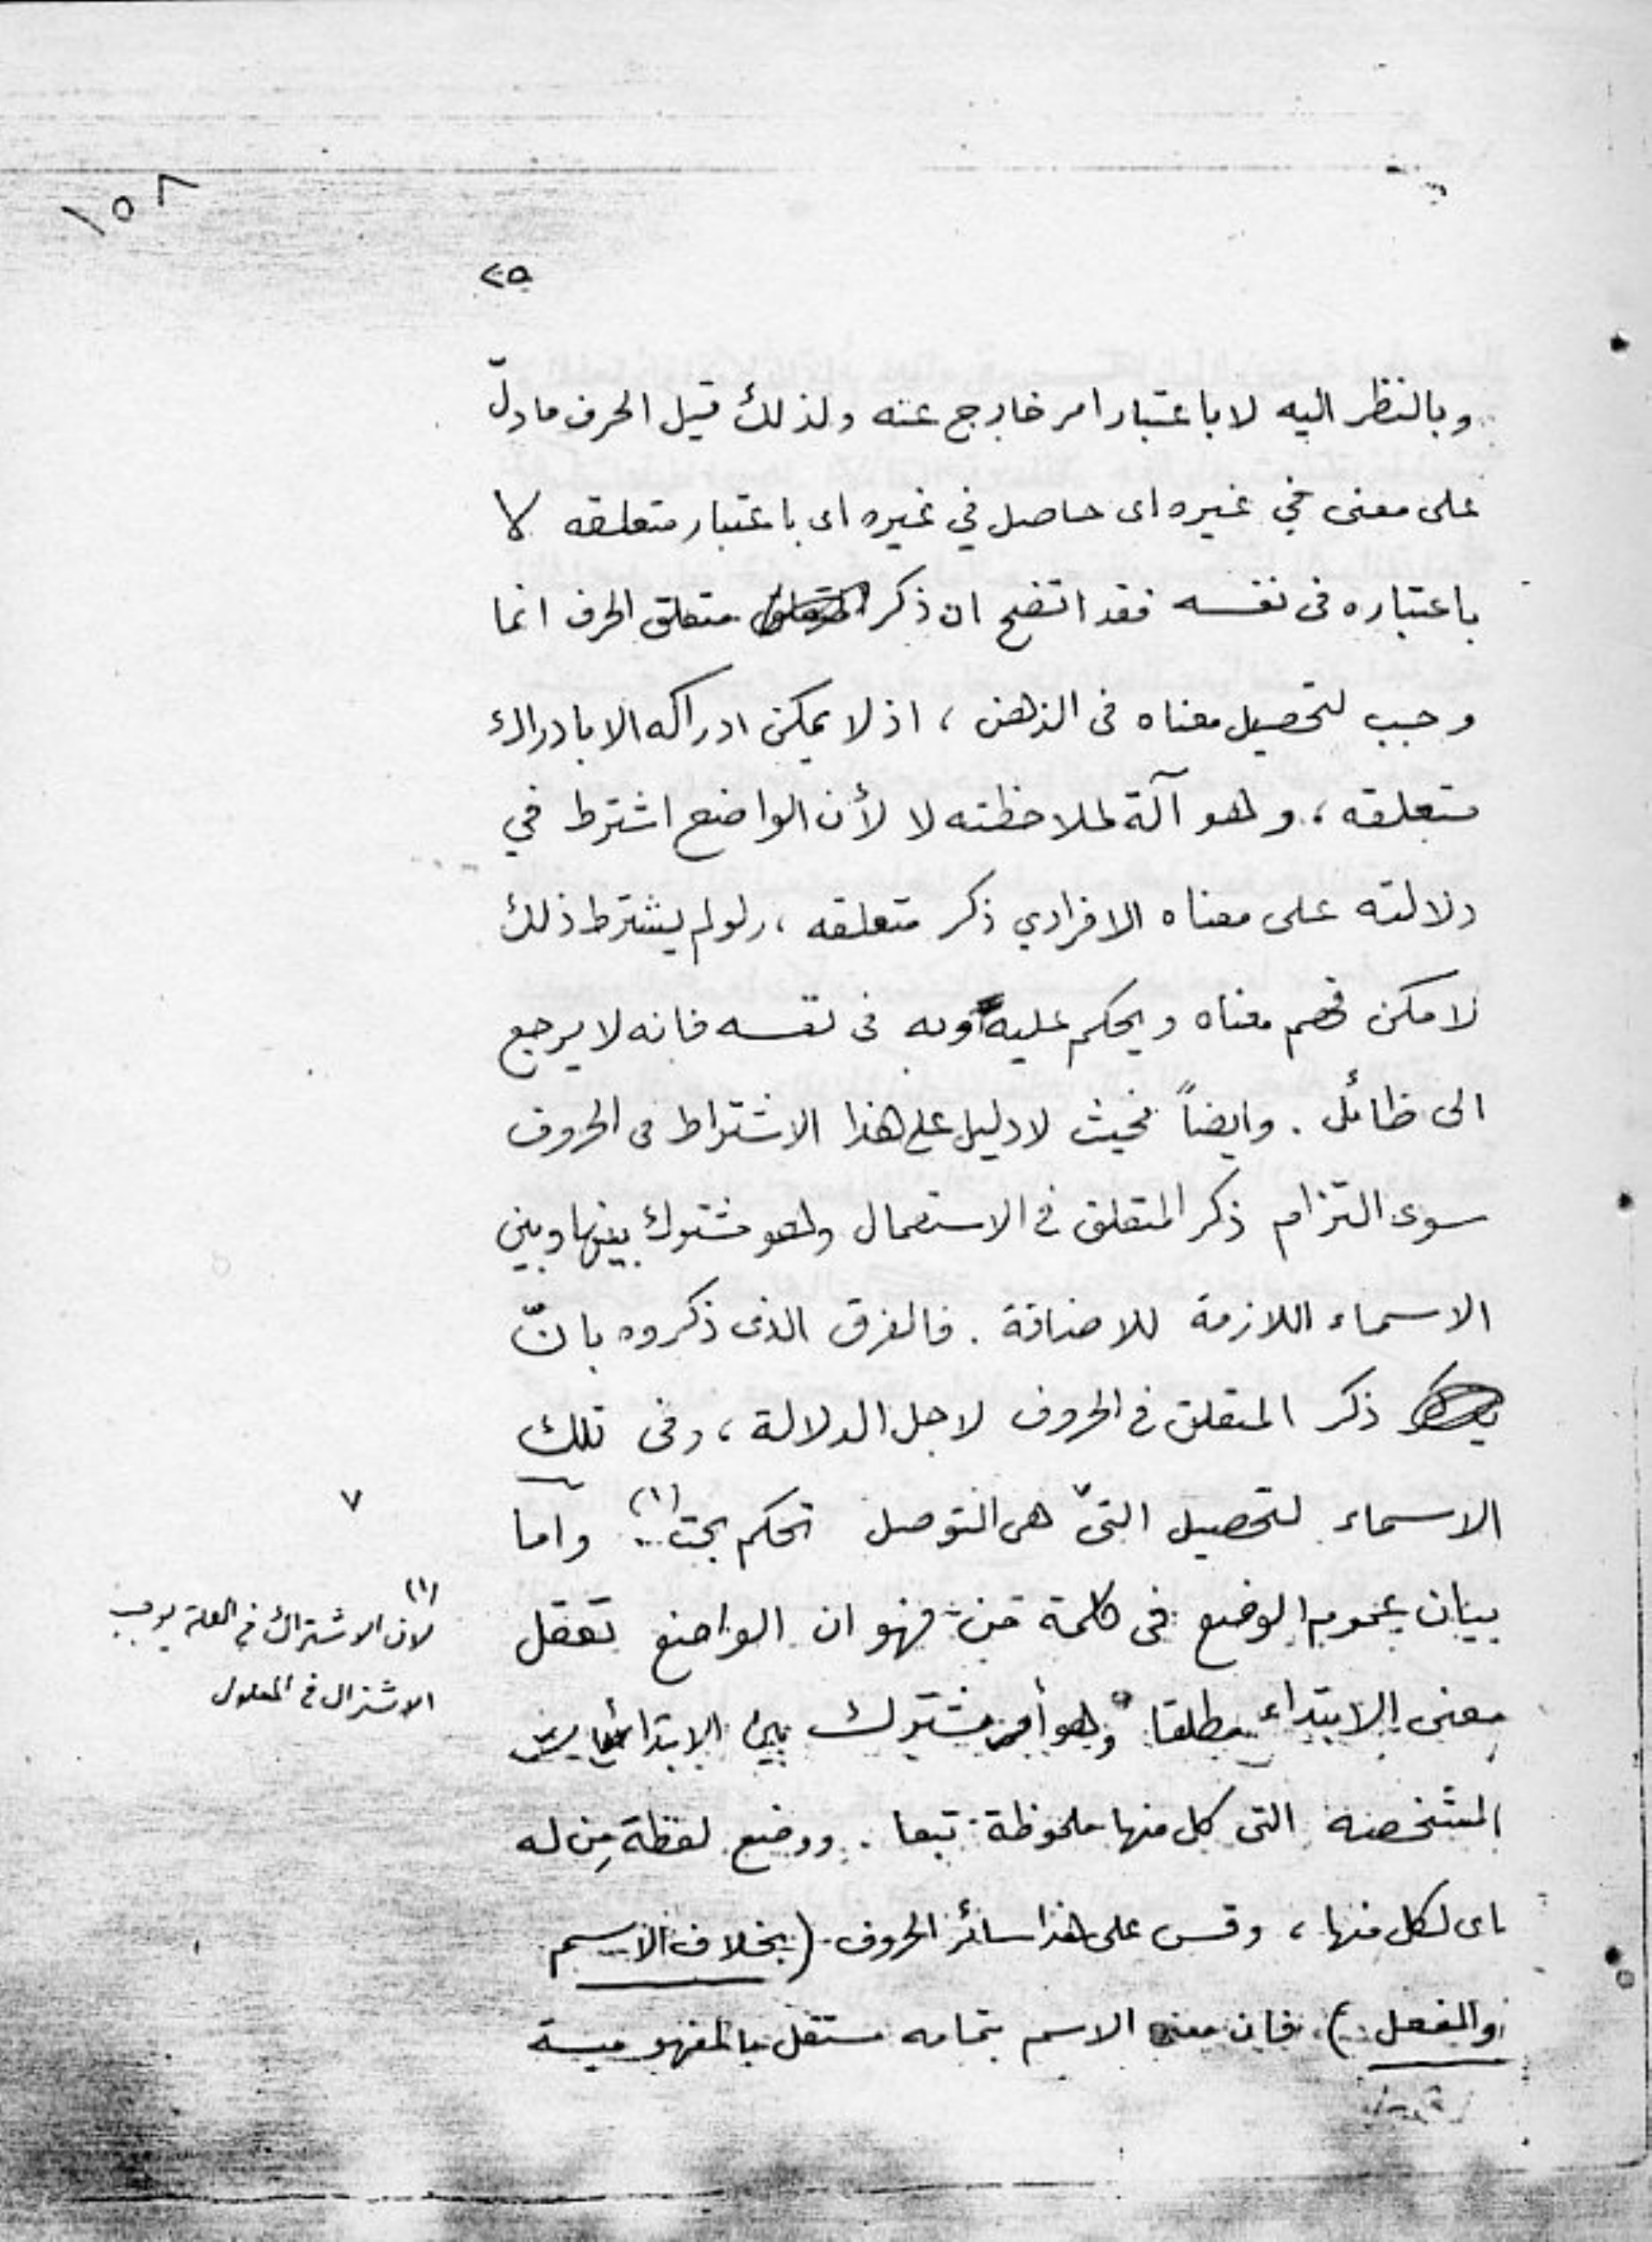 ١٥٨
٢٥
وبالنظر اليه لا باعتبار امر خارج عنه ولذلك قيل الحرف ما دلّ
على معنى في غيره اى حاصل في غيره اى باعتبار متعلقه لا
باعتباره فى نفسه فقد اتضح ان ذكر متعلق الحرف انما
وجب لتحصيل معناه فى الذهن ، اذ لا يمكن ادراكه الا بادراك
متعلقه ، وهو آلة لملاحظته لا لأن الواضع اشترط في
دلالته على معناه الافرادي ذكر متعلقه ، ولو لم يشترط ذلك
لامكن فهم معناه ويحكم عليه وبه فى نفسه فانه لا يرجع
الى طائل . وايضاً فحيث لا دليل على هذا الاشتراط فى الحروف
سوى التزام ذكر المتعلق فى الاستعمال وهو مشترك بينها وبين
الاسماء اللازمة للاضافة . فالفرق الذى ذكروه بانّ
ذكر المتعلق فى الحروف لاجل الدلالة ، وفى تلك
الاسماء لتحصيل التى هى التوصل تحكم بحت (١) واما
بيان عموم الوضع فى كلمة من فهو ان الواضع تعقل
معنى الابتداء مطلقا وهو أمر مشترك بين الابتدائات
المشخصة التى كل منها ملحوظة تبعا . ووضع لفظة مِن له
اى لكل منها ، وقس على هذا سائر الحروف . (بخلاف الاسم
والفعل ) . فان معنى الاسم بتمامه مستقل بالمفهومية
٧
(١)
لان الاشتراك في العلة يوجب
الاشتراك فى المعلول